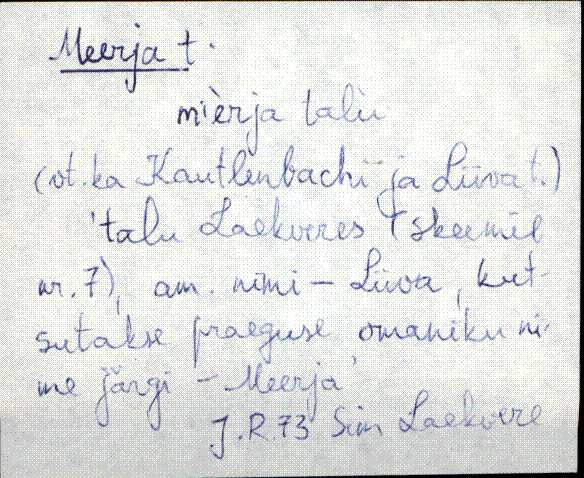 Meerja t.
mièrja talu
(vt. ka Kautlenbachi ja Liiva t.)
'talu Laekveres (skeemil
nr. 7), am. nimi – Liiva, kut-
sutakse praeguse omaniku ni-
me järgi – Meerja'
J.R. 73 Sim Laekvere